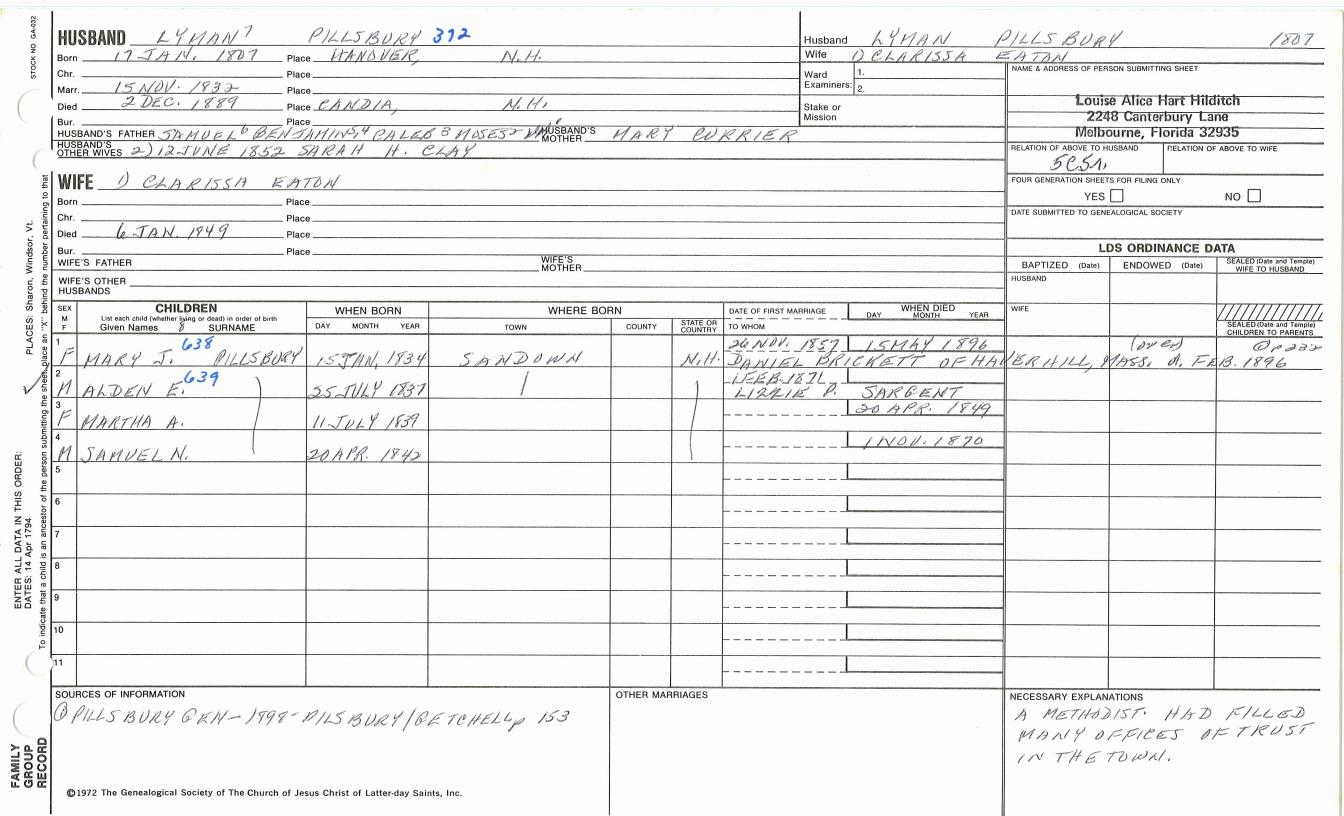 STOCK NO. GA-032
HUSBAND LYMAN 7 PILLSBURY 372
Born 17 JAN. 1807 Place HANOVER, N.H.
Chr. Place
Marr. 15 NOV. 1832 Place
Died 2 DEC. 1889 Place CANDIA, N.H.
Bur. Place
HUSBAND'S FATHER SAMUEL 6 BENJAMIN 5,4 CALEB 3 MOSES 2 WM 1 HUSBAND'S MOTHER MARY CURRIER
HUSBAND'S OTHER WIVES 2) 12 JUNE 1852 SARAH H. CLAY
Husband LYMAN PILLSBURY 1807
Wife 1) CLARISSA EATON
Ward Examiners: 1.
2.
Stake or Mission
NAME & ADDRESS OF PERSON SUBMITTING SHEET
Louise Alice Hart Hilditch
2248 Canterbury Lane
Melbourne, Florida 32935
RELATION OF ABOVE TO HUSBAND RELATION OF ABOVE TO WIFE
FOUR GENERATION SHEETS FOR FILING ONLY
YES NO
DATE SUBMITTED TO GENEALOGICAL SOCIETY
WIFE 1) CLARISSA EATON
Born Place
Chr. Place
Died 6 JAN. 1849 Place
Bur. Place
WIFE'S FATHER WIFE'S MOTHER
WIFE'S OTHER HUSBANDS
LDS ORDINANCE DATA
BAPTIZED (Date) ENDOWED (Date) SEALED (Date and Temple) WIFE TO HUSBAND
HUSBAND
WIFE
SEALED (Date and Temple) CHILDREN TO PARENTS
SEX M F
CHILDREN
List each child (whether living or dead) in order of birth
Given Names 8 SURNAME
WHEN BORN
DAY MONTH YEAR
WHERE BORN
TOWN COUNTY STATE OR COUNTRY
DATE OF FIRST MARRIAGE
TO WHOM
WHEN DIED
DAY MONTH YEAR
1 638 26 NOV. 1857 15 MAY 1896 (over) p 232
F MARY J. PILLSBURY 15 JAN. 1834 SANDOWN N.H. DANIEL BRICKETT OF HAVERHILL, MASS. d. FEB. 1896
2 639 1 FEB. 1871
M ALDEN E. 25 JULY 1837 LIZZIE P. SARGENT
3 20 APR. 1849
F MARTHA A. 11 JULY 1839
4 1 NOV. 1870
M SAMUEL N. 20 APR. 1842
5
6
7
8
9
10
11
SOURCES OF INFORMATION
① PILLSBURY GEN-1898-PILSBURY/GETCHELL p 153
OTHER MARRIAGES
NECESSARY EXPLANATIONS
A METHODIST. HAD FILLED
MANY OFFICES OF TRUST
IN THE TOWN.
©1972 The Genealogical Society of The Church of Jesus Christ of Latter-day Saints, Inc.
FAMILY
GROUP
RECORD
ENTER ALL DATA IN THIS ORDER:
DATES: 14 Apr 1794
PLACES: Sharon, Windsor, Vt.
To indicate that a child is an ancestor of the person submitting the sheet, place an "X" behind the number pertaining to that